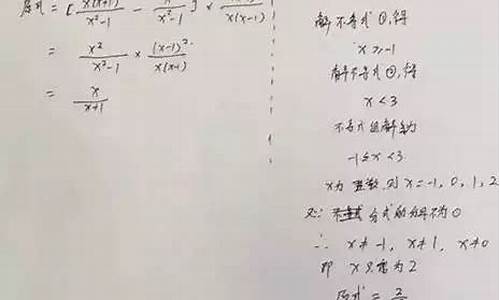 原式 = [ x(x+1) / x²-1 - x / x²-1 ] ×
= x² / x²-1 × (x-1)² / x(x-1)
= x / x+1
解不等式①,得
x ≥ -1
解不等式②,得
x < 3
不等式组解集为
-1 ≤ x < 3
x为整数,则 x = -1, 0, 1, 2
又∵ 分式的分母不为0
∴ x ≠ -1, x ≠ 1, x ≠ 0
即 x只能为2
原式 = 2